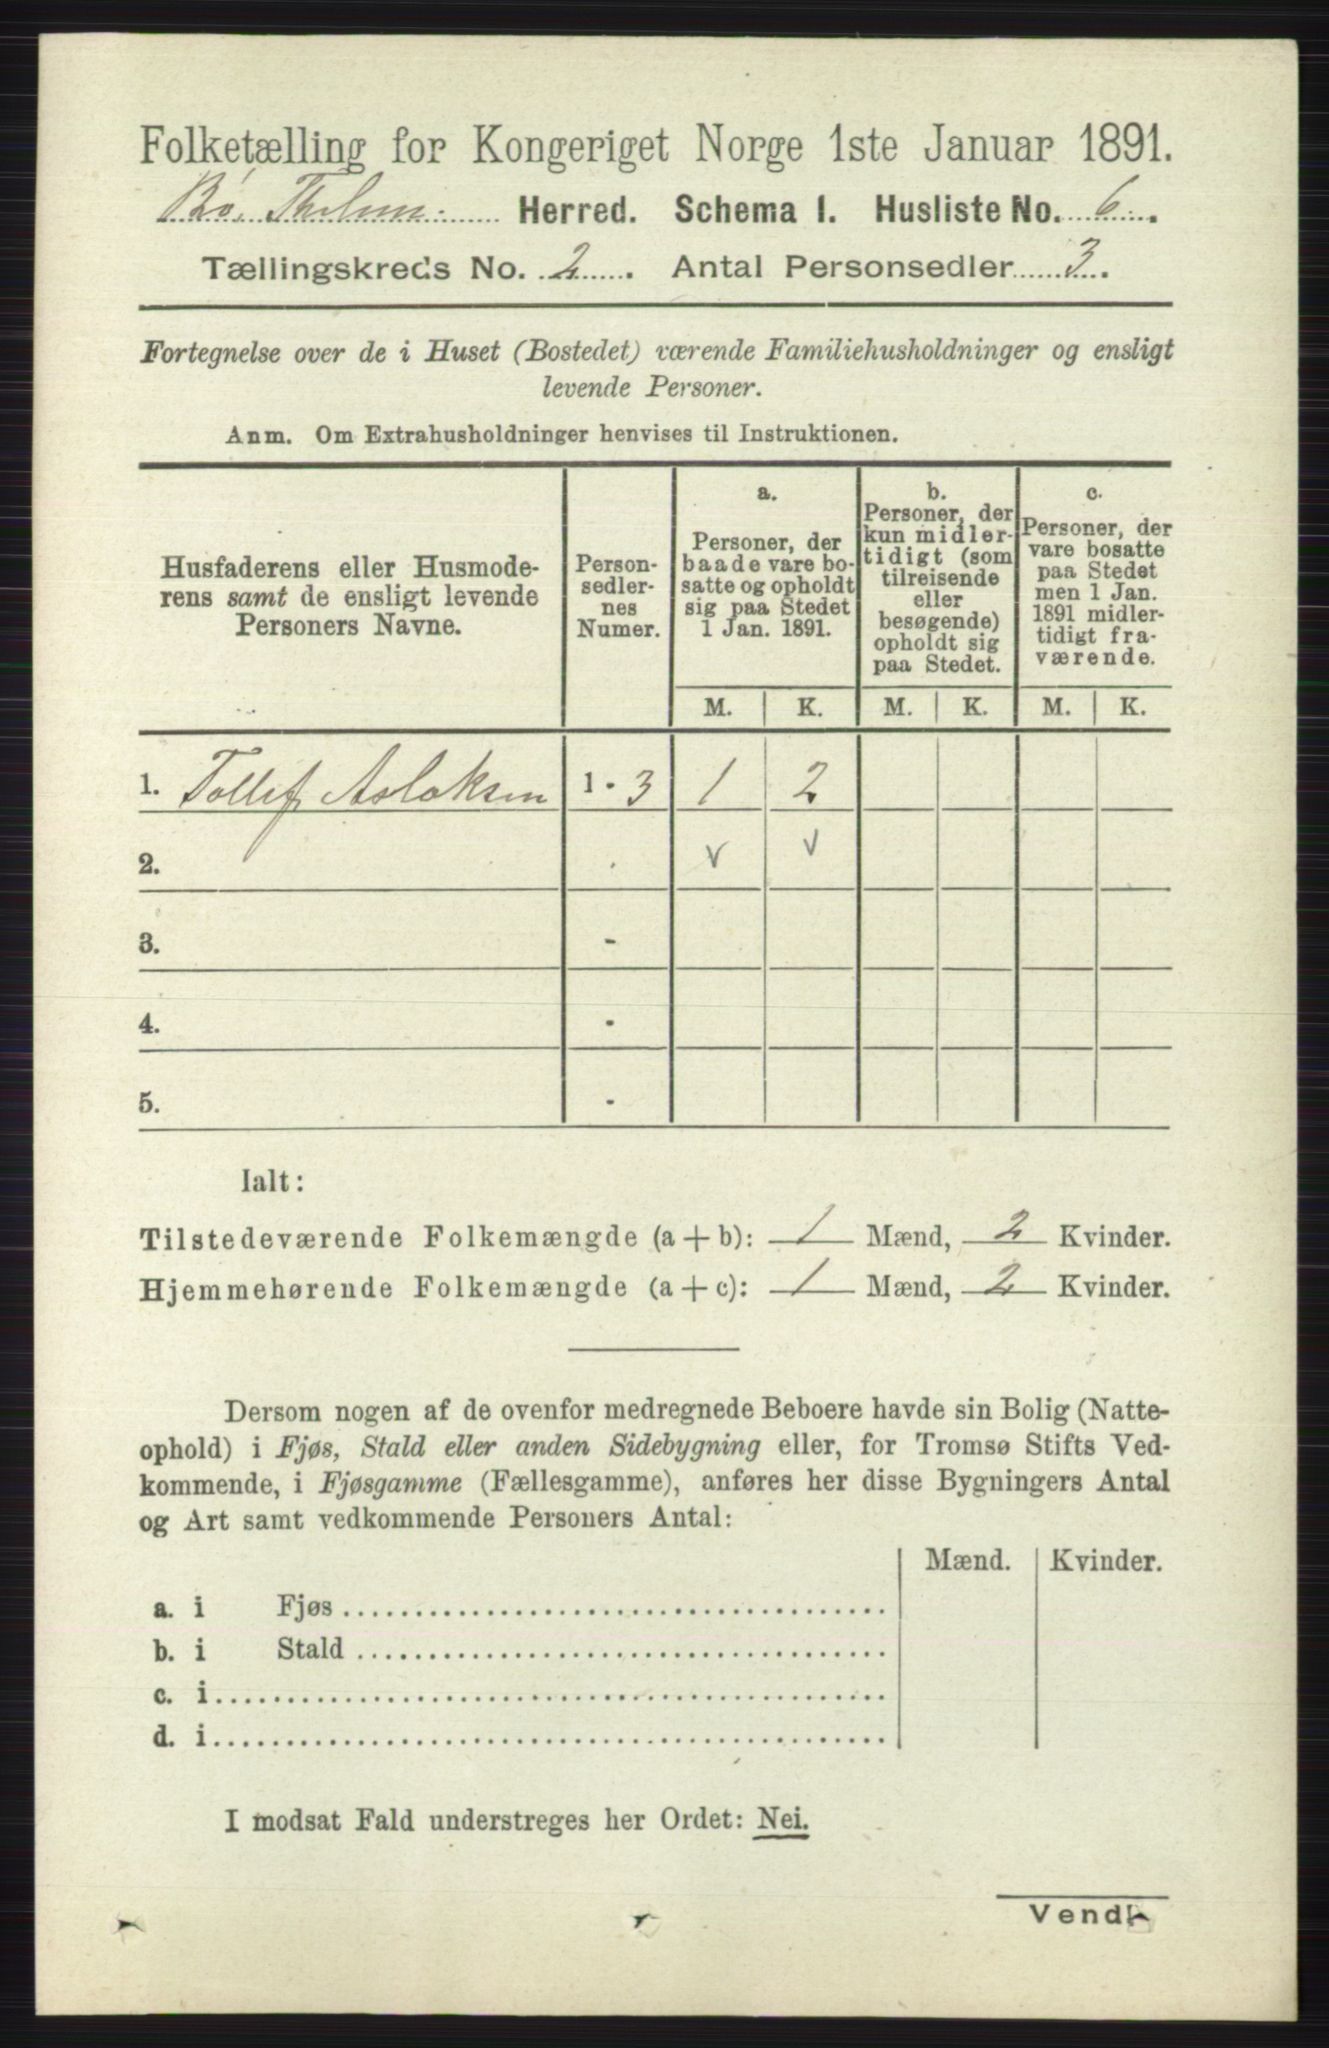 Folketælling for Kongeriget Norge 1ste Januar 1891.
Bø, Thelem. Herred. Schema I. Husliste No. 6.
Tællingskreds No. 2. Antal Personsedler 3.
Fortegnelse over de i Huset (Bostedet) værende Familiehusholdninger og ensligt
levende Personer.
Anm. Om Extrahusholdninger henvises til Instruktionen.
Husfaderens eller Husmode-
rens samt de ensligt levende
Personers Navne.
Person-
sedler-
nes
Numer.
a.
Personer, der
baade vare bo-
satte og opholdt
sig paa Stedet
1 Jan. 1891.
b.
Personer, der
kun midler-
tidigt (som
tilreisende
eller
besøgende)
opholdt sig
paa Stedet.
c.
Personer, der
vare bosatte
paa Stedet
men 1 Jan.
1891 midler-
tidigt fra-
værende.
M. K. M. K. M. K.
1. Tollef Aslaksen 1 - 3 1 2
2. - v v
3. -
4. -
5. -
Ialt:
Tilstedeværende Folkemængde (a + b): 1 Mænd, 2 Kvinder.
Hjemmehørende Folkemængde (a + c): 1 Mænd, 2 Kvinder.
Dersom nogen af de ovenfor medregnede Beboere havde sin Bolig (Natte-
ophold) i Fjøs, Stald eller anden Sidebygning eller, for Tromsø Stifts Ved-
kommende, i Fjøsgamme (Fællesgamme), anføres her disse Bygningers Antal
og Art samt vedkommende Personers Antal:
Mænd. Kvinder.
a. i Fjøs
b. i Stald
c. i
d. i
I modsat Fald understreges her Ordet: Nei.
Vend!